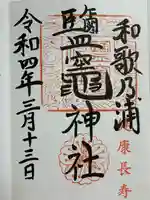 和歌乃浦
康長寿
鹽竈神社
令和四年三月十三日